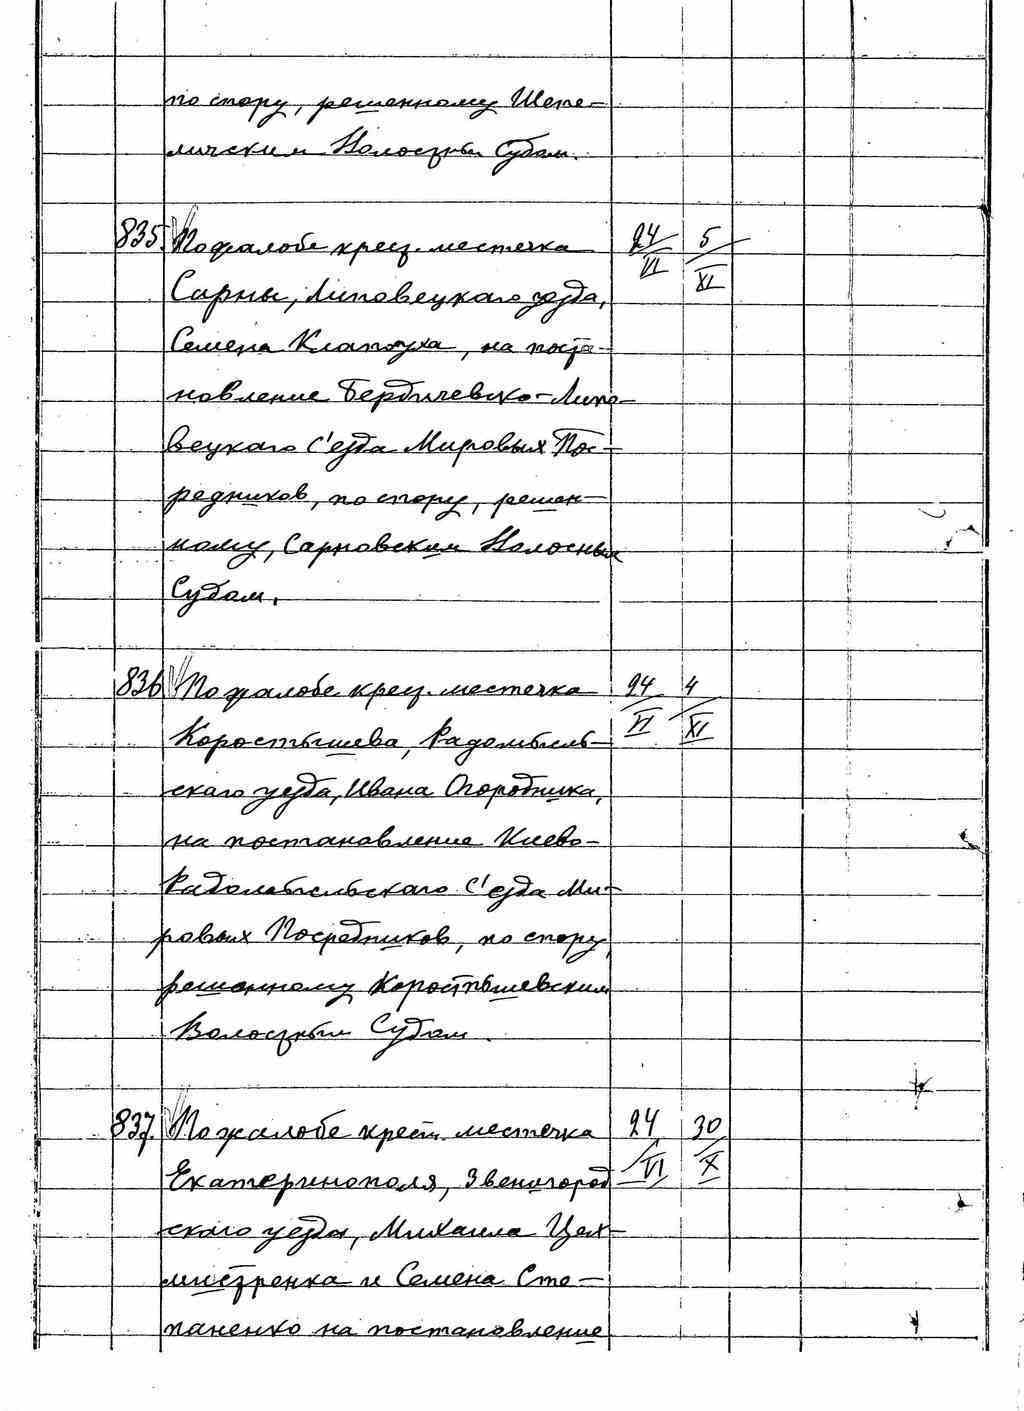 по спору, решенному Шепе-
личским Волостным Судом.
835. По жалобе крест. местечка 24/VI 5/XI
Сарны, Липовецкаго уезда,
Семена Клапоуха, на поста-
новление Бердичевско-Липо-
вецкаго С'езда Мировых Пос-
редников, по спору, решен-
ному, Сарновским Волосным
Судом.
836 По жалобе крест. местечка 24/VI 4/XI
Коростышева, Радомысль-
скаго уезда, Ивана Огородника,
на постановление Киево-
Радомысльскаго С'езда Ми-
ровых Посредников, по спору,
решенному Коростышевским
Волостным Судом.
837. По жалобе крест. местечка 24/VI 30/X
Екатеринополя, Звенигород
скаго уезда, Михаила Цех-
мистренка и Семена Сте-
паненко на постановление